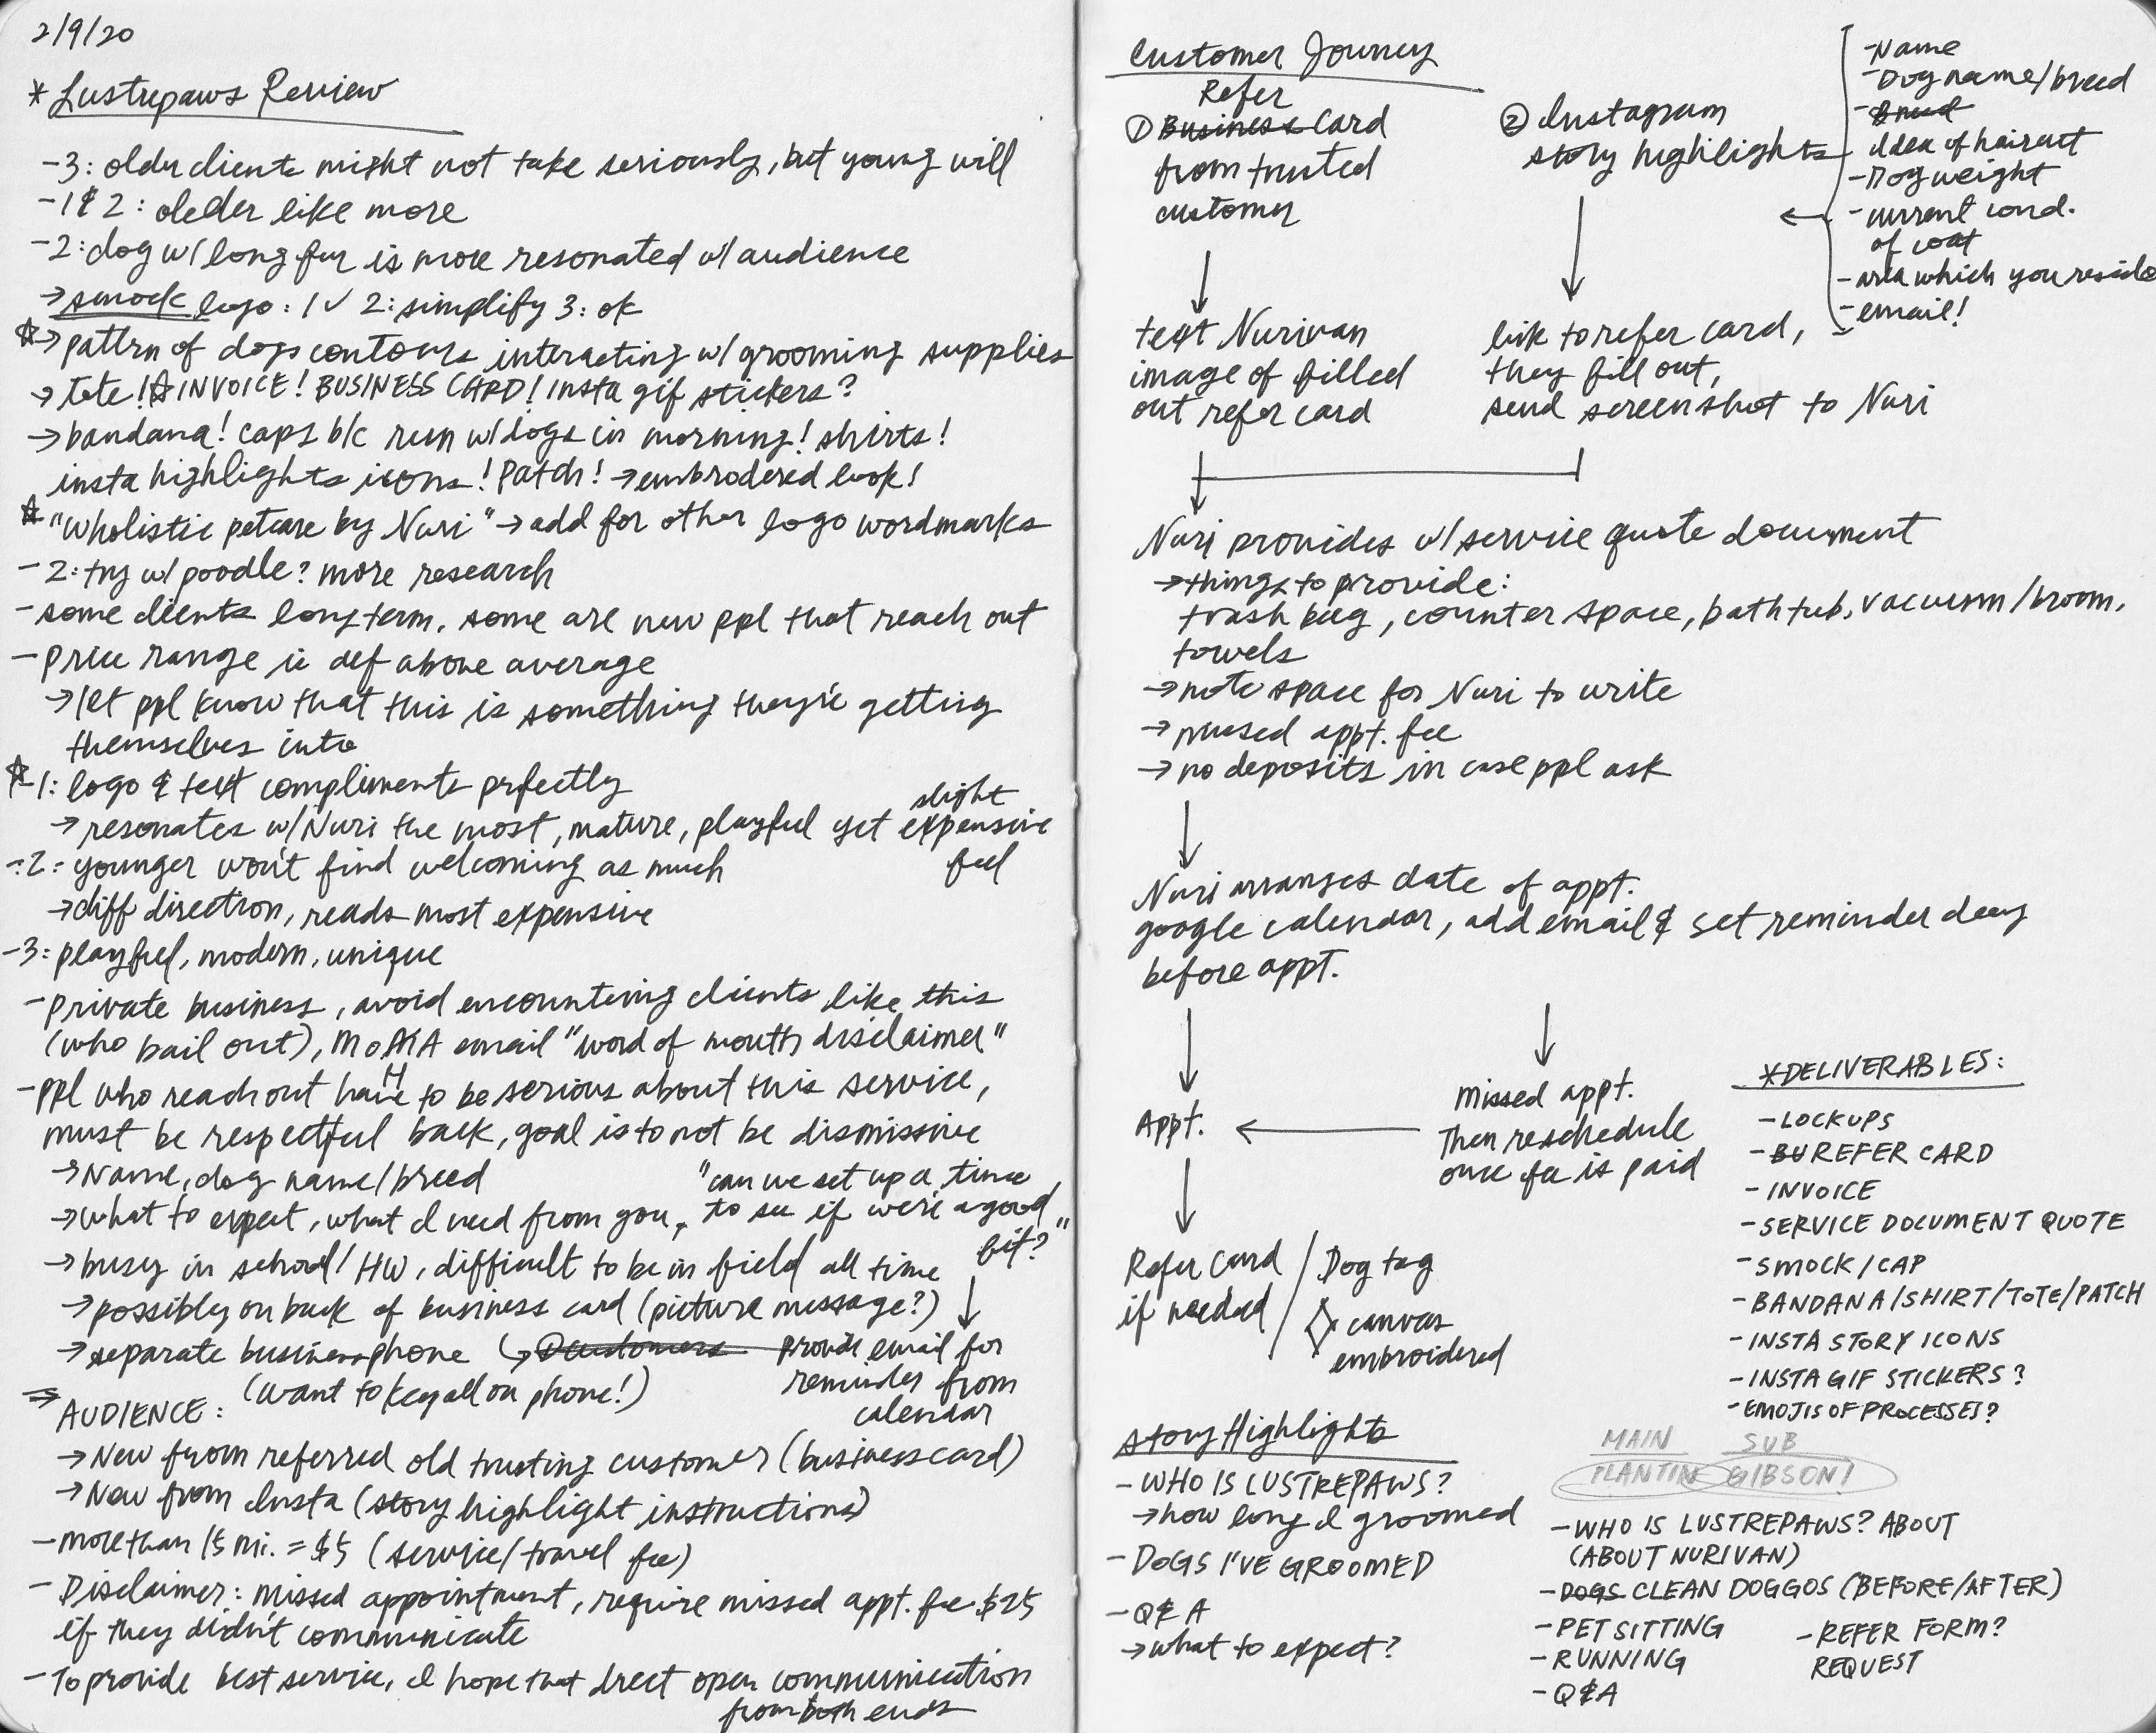 2/9/20
* Lustrepaws Review
-3: older clients might not take seriously, but young will
-1&2: oleder like more
-2: dog w/ long fur is more resonated w/ audience
→ smock logo: 1✓ 2: simplify 3: ok
☆→ pattrn of dogs contours interacting w/ grooming supplies
→ tote! ☆ INVOICE! BUSINESS CARD! insta gif stickers?
→ bandana! caps b/c run w/ dogs in morning! shirts!
insta highlights icons! Patch! → embrodered look!
☆ "wholistic petcare by Nuri" → add for other logo wordmarks
- 2: try w/ poodle? more research
- some clients long term, some are new ppl that reach out
- price range is def above average
→ let ppl know that this is something they're getting
themselves into
☆-1: logo & text compliments prfectly
→ resonates w/ Nuri the most, mature, playful yet slight expensive
feel
-2: younger won't find welcoming as much
→ diff direction, reads most expensive
-3: playful, modern, unique
- private business, avoid encountering clients like this
(who bail out), email "word of mouth disclaimer"
- ppl who reach out have to be serious about this service,
must be respectful back, goal is to not be dismissive
→ Name, dog name/breed
"can we set up a time
to see if we're a good
fit?"
→ what to expect, what I need from you,
→ busy in school/HW, difficult to be in field all time
→ possibly on back of business card (picture message?)
→ separate business phone ↳ customers provide email for
reminder from
calendar
(want to keep all on phone!)
⇒ AUDIENCE:
→ New from referred old trusting customer (business card)
→ New from Insta (story highlight instructions)
- more than 15 mi. = $5 (service/travel fee)
- Disclaimer: missed appointment, require missed appt. fee $25
if they didn't communicate
- To provide best service, I hope that drect open communication
from both ends
Customer Journey
Refer
① Business Card
from trusted
customer
↓
text Nurivan
image of filled
out refer card
② Instagram
story highlights
↓
link to refer card,
they fill out,
send screenshot to Nuri
- Name
- Dog name/breed
- Breed
idea of haircut
- Dog weight
- current cond.
of coat
- area which you reside
- email!
Nuri provides w/ service quote document
→ things to provide:
trash bag, counter space, bathtub, vacuum/broom,
towels
→ note space for Nuri to write
→ missed appt. fee
→ no deposits in case ppl ask
↓
Nuri arranges date of appt.
google calendar, add email & set reminder day
before appt.
↓
Appt. ←
Missed appt.
Then reschedule
once fee is paid
↓
Refer Card
if needed
/ Dog tag
◇ canvas
embroidered
*DELIVERABLES:
- LOCKUPS
- BU REFER CARD
- INVOICE
- SERVICE DOCUMENT QUOTE
- SMOCK/CAP
- BANDANA/SHIRT/TOTE/PATCH
- INSTA STORY ICONS
- INSTA GIF STICKERS?
- EMOJIS OF PROCESSES?
MAIN SUB
PLANTIN GIBSON!
Story Highlights
- WHO IS LUSTREPAWS?
→ how long I groomed
- DOGS I'VE GROOMED
- Q&A
→ what to expect?
- WHO IS LUSTREPAWS? ABOUT
(ABOUT NURIVAN)
- DOGS CLEAN DOGGOS (BEFORE/AFTER)
- PET SITTING
- RUNNING
- Q&A
- REFER FORM?
REQUEST